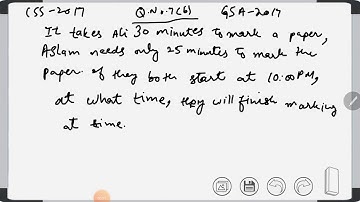 CSS-2017 Q.No.7(b) GSA-2017
It takes Ali 30 minutes to mark a paper,
Aslam needs only 25 minutes to mark the
Paper. If they both start at 10:00PM,
at what time, they will finish marking
at time.